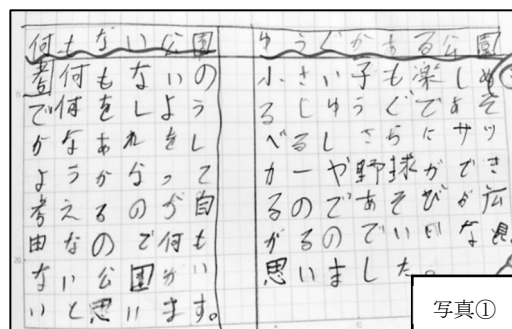 何もない公園
考何もないの
で何をしよう
かなあれをし
ようかなって
考えるのが自
由なので何も
ない公園がい
いと思います。
ゆうぐがある公園
小さい子も楽しめ
るしゆうぐであそ
べるしさらにサッ
カーや野球ができ
るのであそびが広
がるのでいいな
思いました。
写真①